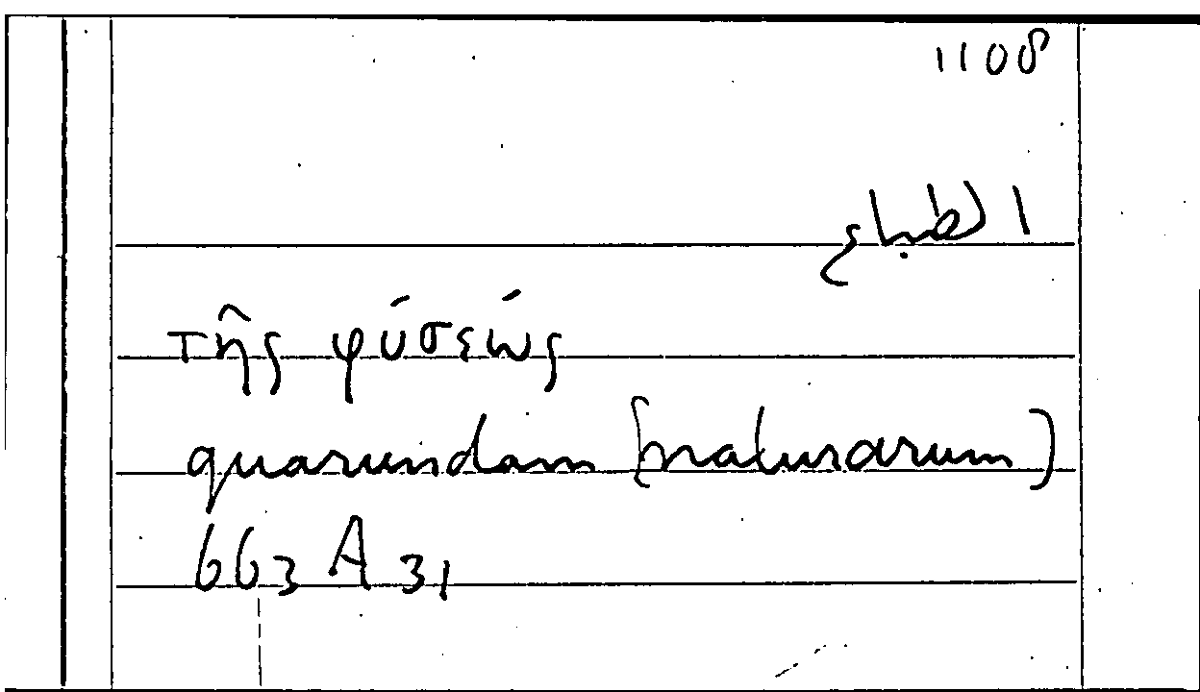 1108
الطباع
τῆς φύσεώς
quarundam (naturarum)
663 A 31